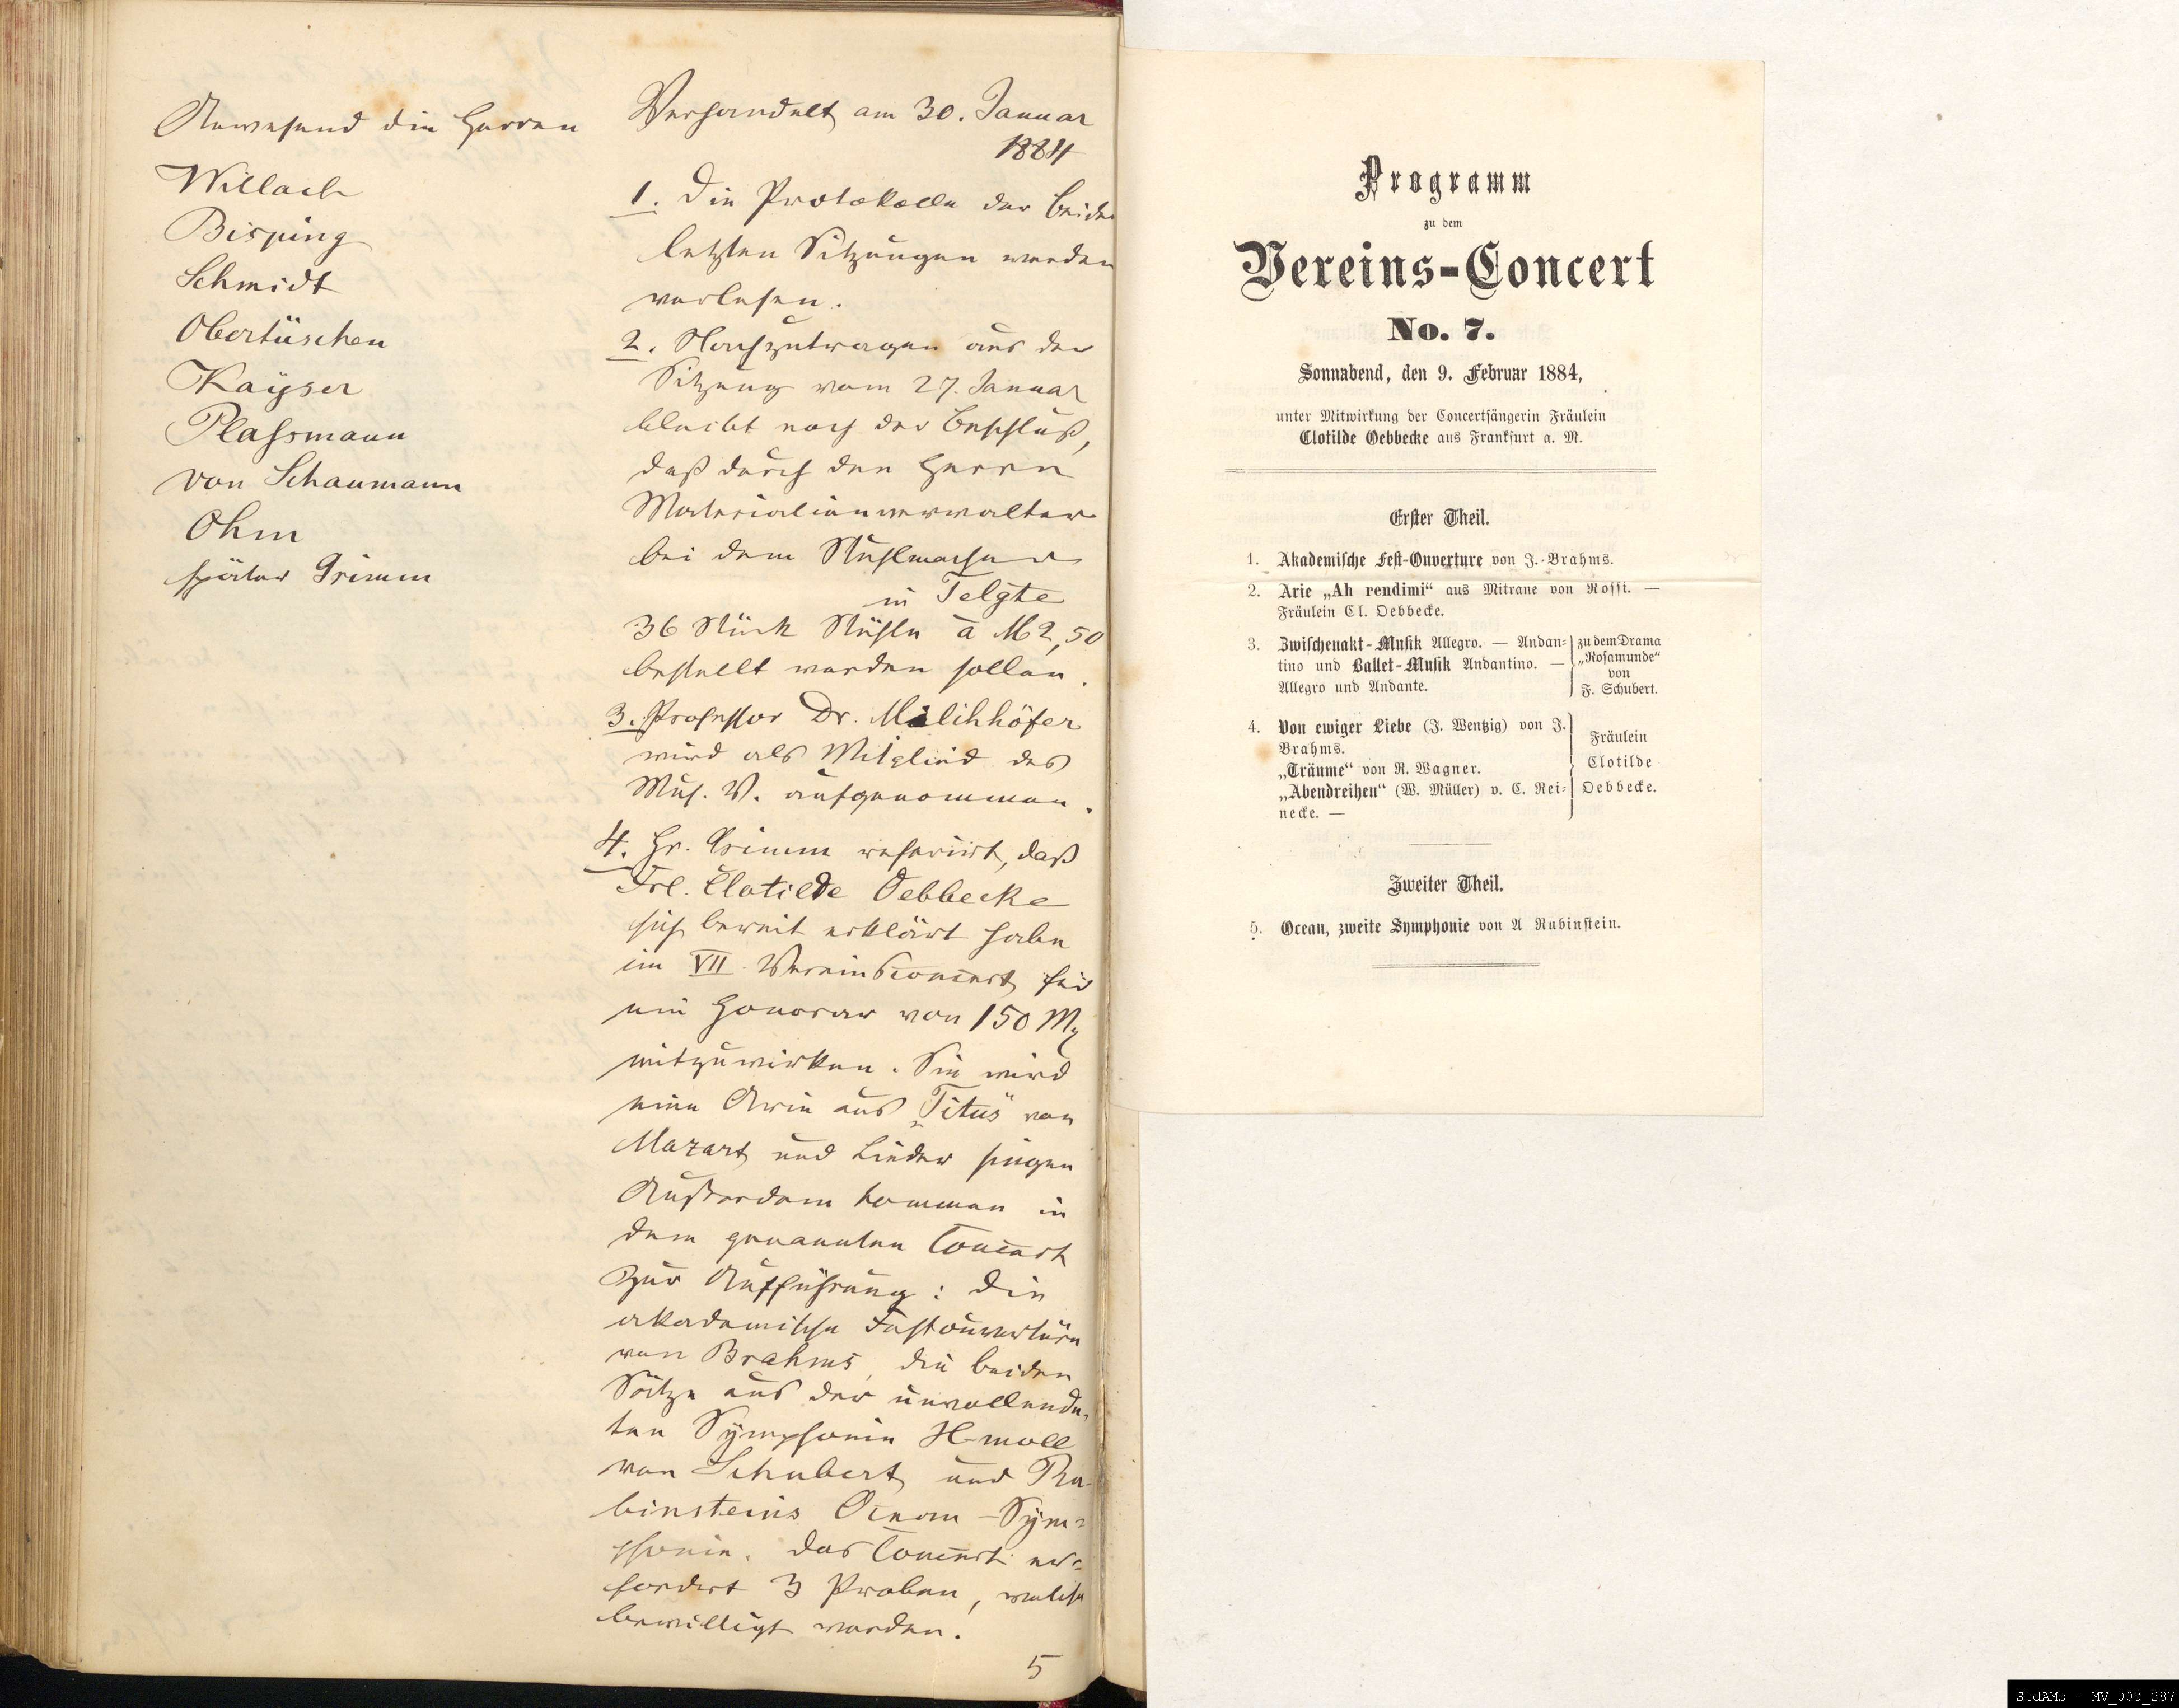 Anwesend die Herren
Willach
Bisping
Schmidt
Obertüschen
Kayser
Plassmann
von Schaumann
Ohm
später Grimm
Verhandelt am 30. Januar
1884
1. Die Protokolle der beiden
letzten Sitzungen werden
verlesen.
2. Nachzutragen aus der
Sitzung vom 27. Januar
bleibt noch der Beschluß,
daß durch den Herrn
Materialienverwalter
bei dem Stuhlmacher
in Telgte
36 Stück Stühle à M 2,50
bestellt werden sollen.
3. Professor Dr. Milchhöfer
wird als Mitglied des
Mus. V. aufgenommen.
4. Hr. Grimm referirt, daß
Frl. Clotilde Oebbecke
sich bereit erklärt habe
im VII Vereinsconcert für
ein Honorar von 150 M
mitzuwirken. Sie wird
eine Arie aus „Titus" von
Mozart und Lieder singen
Außerdem kommen in
dem genannten Concert
zur Aufführung: die
akademische Festouvertüre
von Brahms, die beiden
Sätze aus der unvollende-
ten Symphonie H-moll
von Schubert und Ru-
binsteins Ocean-Sym-
phonie. Das Concert er-
fordert 3 Proben, welche
bewilligt werden.
5
Programm
zu dem
Vereins-Concert
No. 7.
Sonnabend, den 9. Februar 1884,
unter Mitwirkung der Concertsängerin Fräulein
Clotilde Oebbecke aus Frankfurt a. M.
Erster Theil.
1. Akademische Fest-Ouverture von J. Brahms.
2. Arie „Ah rendimi“ aus Mitrane von Rossi. —
Fräulein Cl. Oebbecke.
3. Zwischenakt-Musik Allegro. — Andan-
tino und Ballet-Musik Andantino. —
Allegro und Andante.
zu dem Drama
„Rosamunde“
von
F. Schubert.
4. Von ewiger Liebe (J. Wentzig) von J.
Brahms.
„Träume“ von R. Wagner.
„Abendreihen“ (W. Müller) v. C. Rei-
necke. —
Fräulein
Clotilde
Oebbecke.
Zweiter Theil.
5. Ocean, zweite Symphonie von A Rubinstein.
StdAMs - MV_003_287